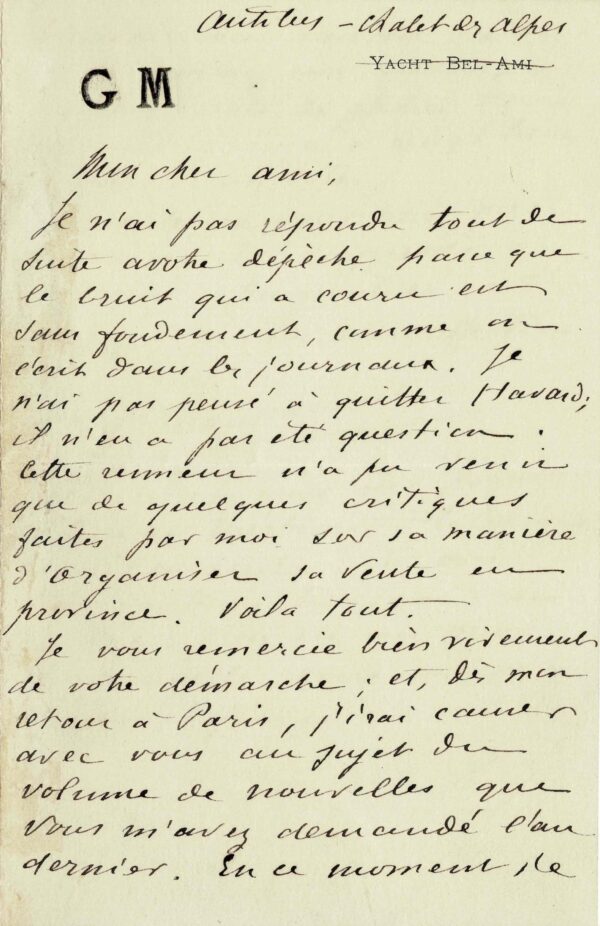 Antibes – Chalet des Alpes
YACHT BEL-AMI
G M
Mon cher ami,
Je n'ai pas répondu tout de
suite a votre dépèche parce que
le bruit qui a couru est
sans fondement, comme on
écrit dans les journaux. Je
n'ai pas pensé à quitter Havard;
il n'en a pas été question.
Cette rumeur n'a pu venir
que de quelques critiques
faites par moi sur sa manière
d'organiser sa vente en
province. Voila tout.
Je vous remercie bien vivement
de votre démarche; et, dès mon
retour à Paris, j'irai causer
avec vous au sujet du
volume de nouvelles que
vous m'avez demandé l'an
dernier. En ce moment, je